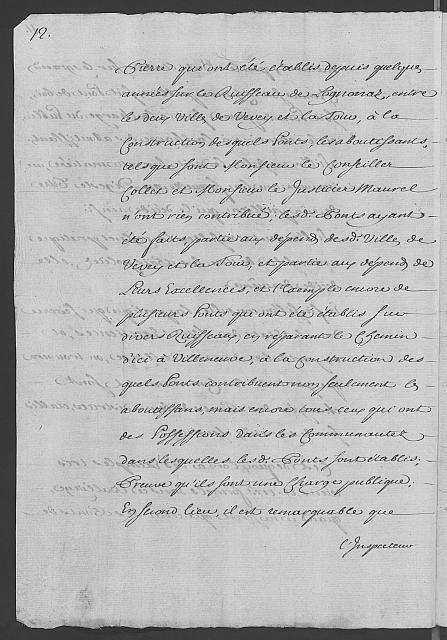 12.
Pierre qui ont été établis depuis quelques
années sur le Ruisseau de Lognonaz, entre
les deux Villes de Vevey et la Tour, à la
Construction desquels Ponts, les aboutissants,
tels que sont Monsieur le Conseiller
Collet et Monsieur le Justicier Maurel
n'ont rien contribué; les d.s Ponts ayant
été faits, partie aux depends des d.s Villes de
Vevey et la Tour, et partie aux depends de
Leurs Excellences, et l'Exemple encore de
plusieurs Ponts qui ont été établis sur
divers Ruisseaux, en réparant le Chemin
d'ici à Villeneuve, à la Construction des
quels Ponts contribuent non seulement les
aboutissans, mais encore tous ceux qui ont
des Possessions dans les Communautez
dans lesquelles les d.s Ponts sont établis.
Preuve qu'ils sont une Charge publique.
En second lieu, il est remarquable que
l'Inspecteur